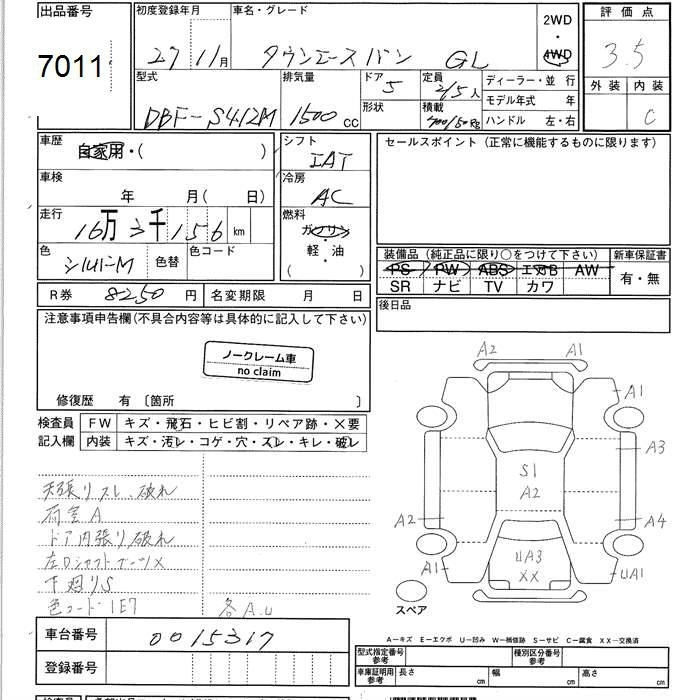 出品番号
7011
初度登録年月
27 11月
車名・グレード
タウンエースバン GL
2WD
・
4WD
評価点
3.5
外装 内装
C
型式
DBF-S412M
排気量
1500 cc
ドア
5
形状
定員
2/5人
積載
ディーラー・並行
モデル年式 年
ハンドル 左・右
車歴
自家用・( )
車検
年 月( 日)
走行
16万3千156 km
色
シルバーM
色替
色コード
シフト
IAT
冷房
AC
燃料
ガソリン
軽・油
( )
セールスポイント (正常に機能するものに限ります)
装備品 (純正品に限り○をつけて下さい)
PS PW ABS エアB AW
SR ナビ TV カワ
新車保証書
有・無
R券 8250 円
名変期限 月 日
後日品
注意事項申告欄(不具合内容等は具体的に記入して下さい)
ノークレーム車
no claim
修復歴 有 〔箇所 〕
検査員
記入欄
FW キズ・飛石・ヒビ割・リペア跡・×要
内装 キズ・汚レ・コゲ・穴・スレ・キレ・破レ
天張りスレ、破れ
荷室A
ドア内張り破れ
左Dシャフトブーツ×
下廻りS
色コード 1E7
各A.U
A2 A1
A1
A3
S1
A2
A2
A4
UA3
XX
A1
UA1
スペア
車台番号
0015317
登録番号
A―キズ E―エクボ U―凹み W―補修跡 S―サビ C―腐食 XX―交換済
型式指定番号
参考
種別区分番号
参考
車庫証明用
参考
長さ cm
幅 cm
高さ cm